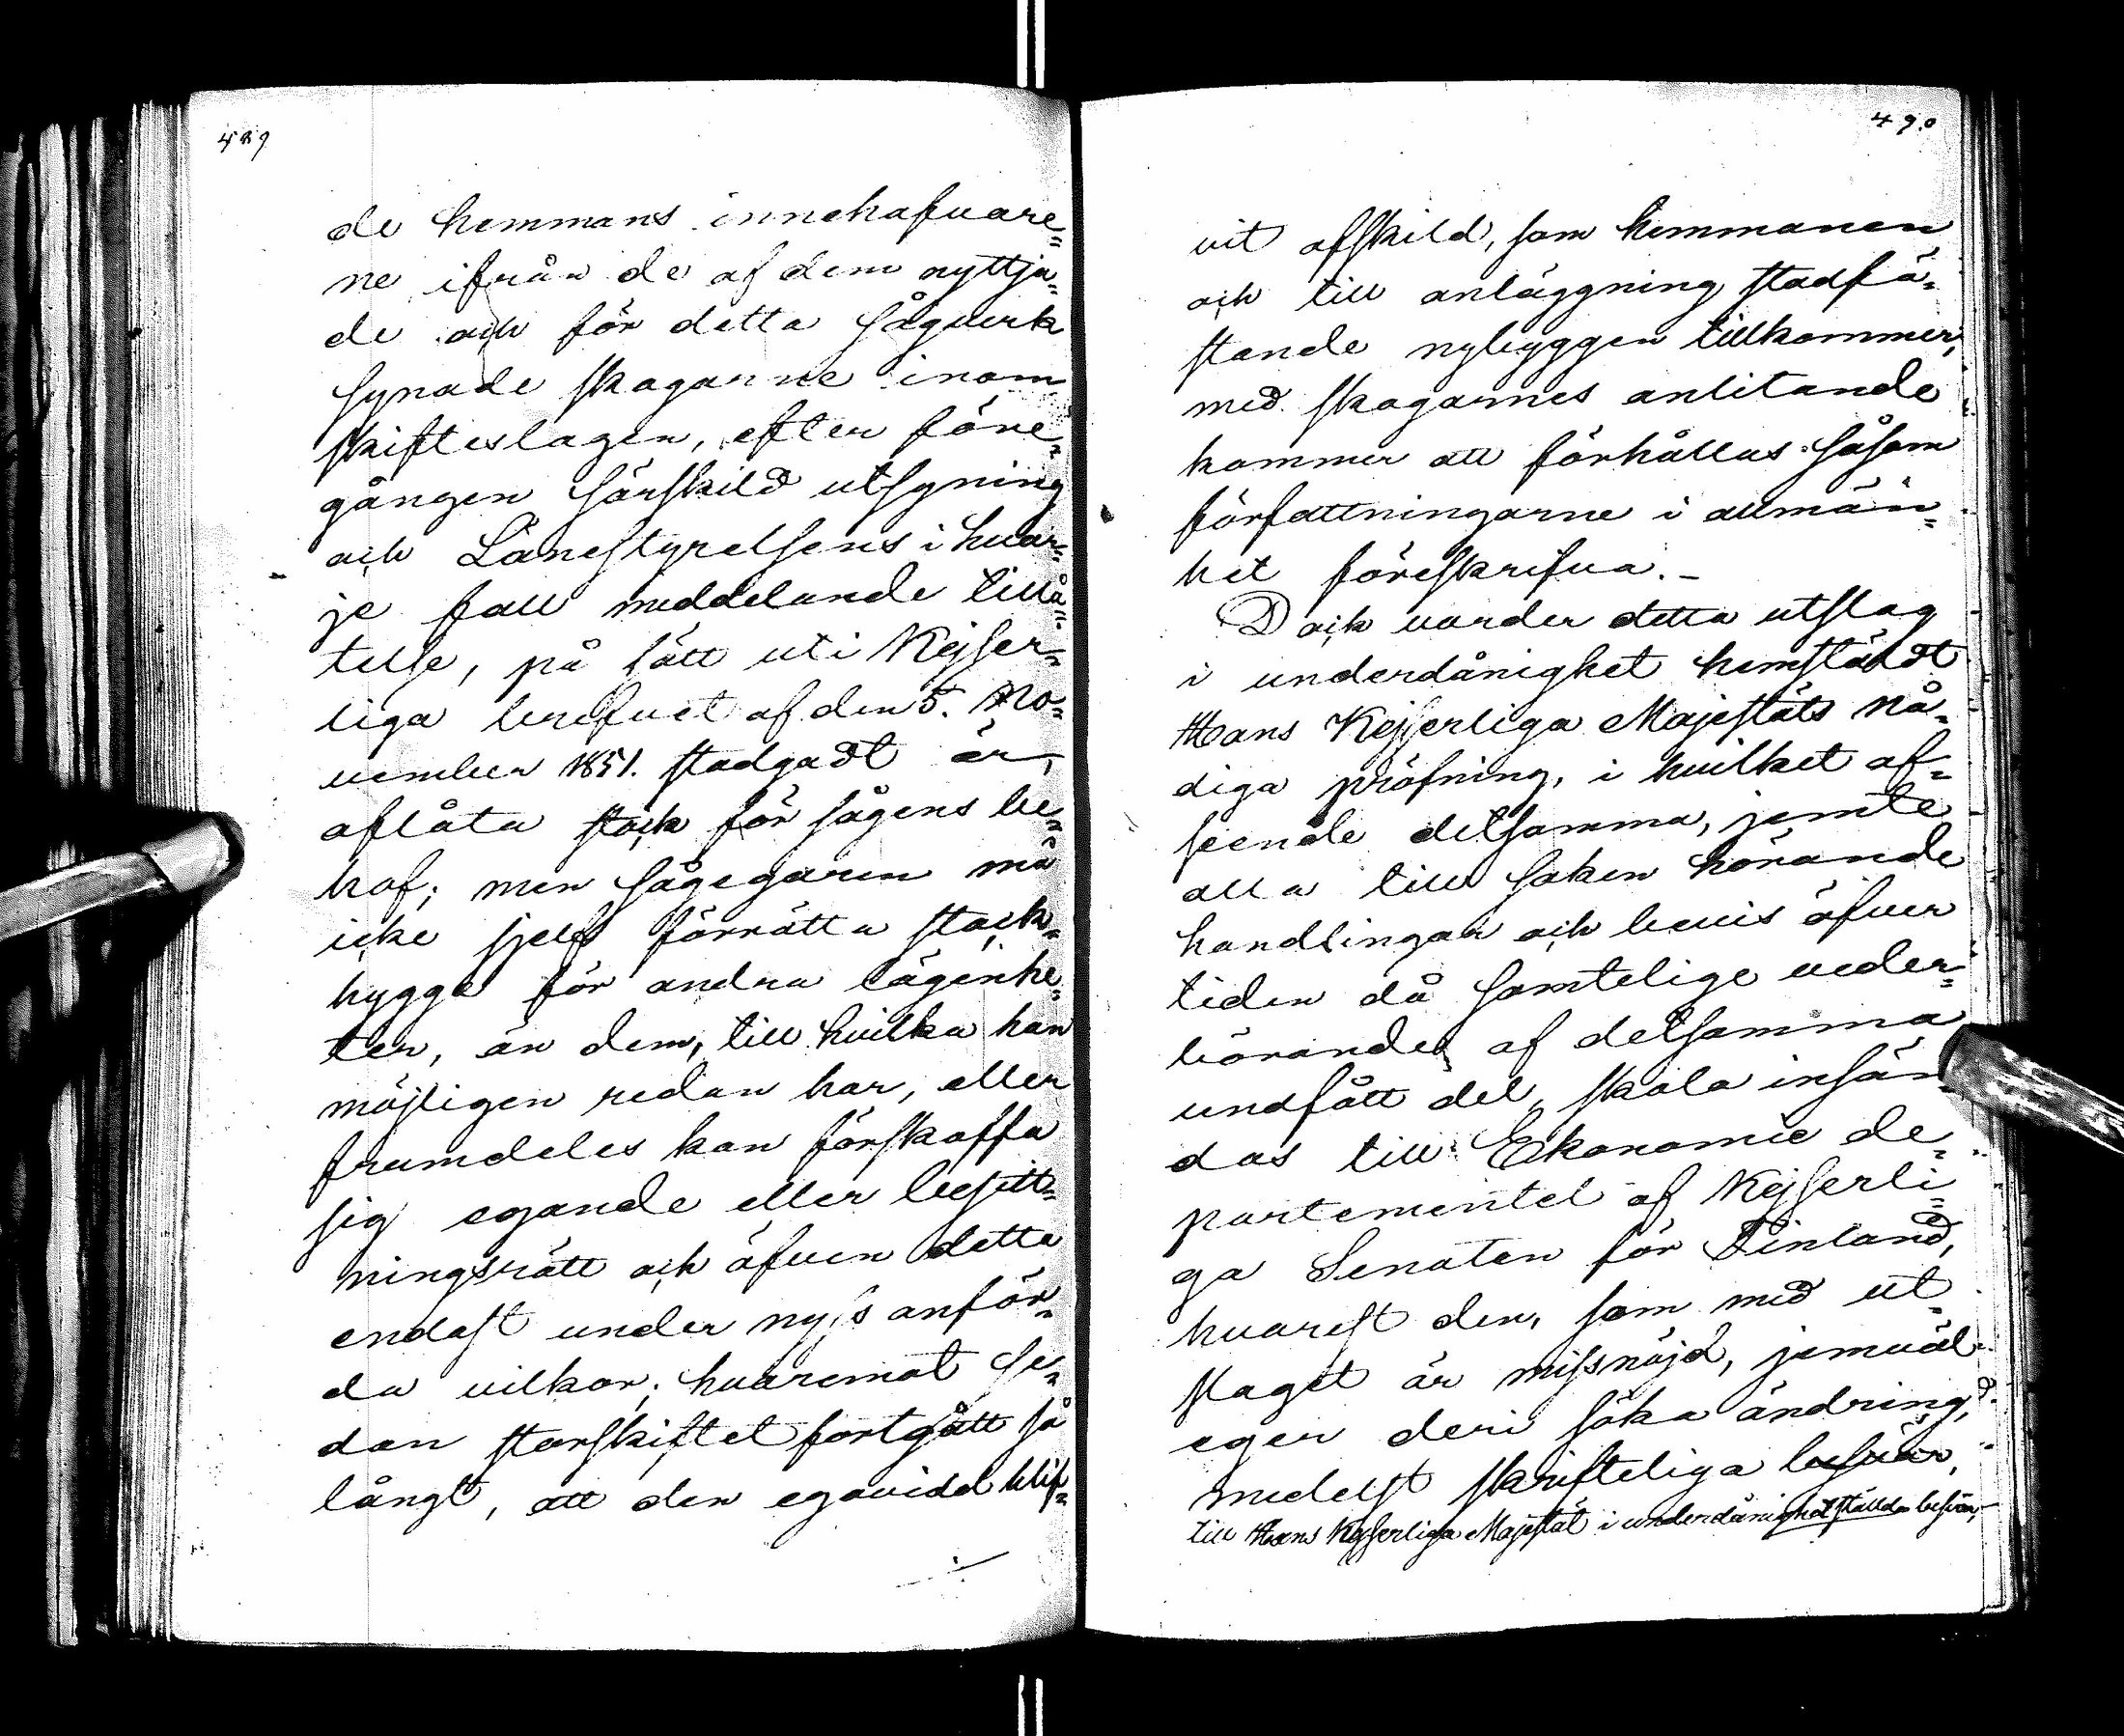 489
de hemmans innehafvare=
ne ifrån de af dem nyttja=
de och för detta sågverk
synade skogarne inom
skifteslagen, efter före=
gången särskild utsyning
och Länestyrelsens i hvar=
je fall meddelande tillå=
telse, på sätt uti Kejser=
liga brefvet af den 5. No=
vember 1851. stadgadt är,
aflåta stock för sågens be=
hof; men sågegaren må
icke sjelf förrätta stock=
hygge för andra lägenhe=
ter, än dem, till hvilka han
möjligen redan har, eller
framdeles kan förskaffa
sig egande eller besitt=
ningsrätt och äfven detta
endast under nyss anför=
da vilkor; hvaremot se=
dan storskiftet fortgått så
långt, att den egovidd blif=
490
vit afskild, som hemmanen
och till anläggning stadfä=
stande nybyggen tillkommer,
med skogarnes anlitande
kommer att förhållas såsom
författningarne i allmän=
het föreskrifva. -
Dock varder detta utslag
i underdånighet hemstäldt
Hans Kejserliga Majestäts nå=
diga pröfning, i hvilket af=
seende detsamma, jemte
alla till saken hörande
handlingar och bevis öfver
tiden då samtelige veder=
börandes af detsamma
undfått del, skola insän=
das till Ekonomie de=
partementet af Kejserli=
ga Senaten för Finland,
hvarest den, som med ut=
slaget är missnöjd, jemväl
eger deri söka ändring,
medelst skrifteliga besvär,
till Hans Kejserliga Majestät i underdånighet ställda besvär,